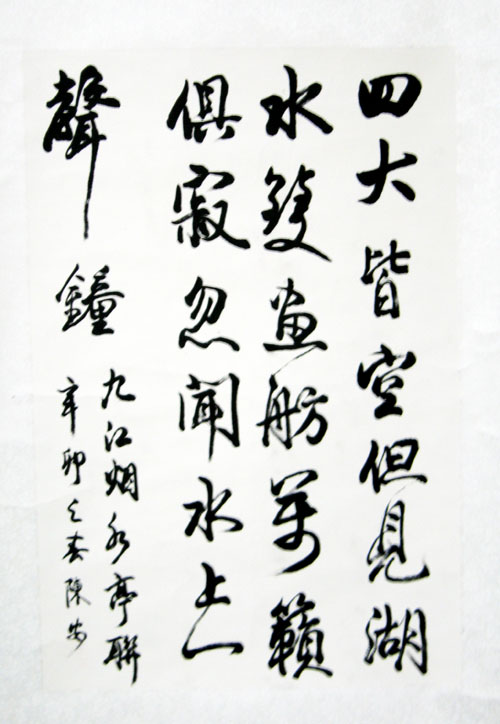 四大皆空但見湖
水雙畫舫萬籟
俱寂忽聞水上一
聲鐘
九江烟水亭聯
辛卯之春陳